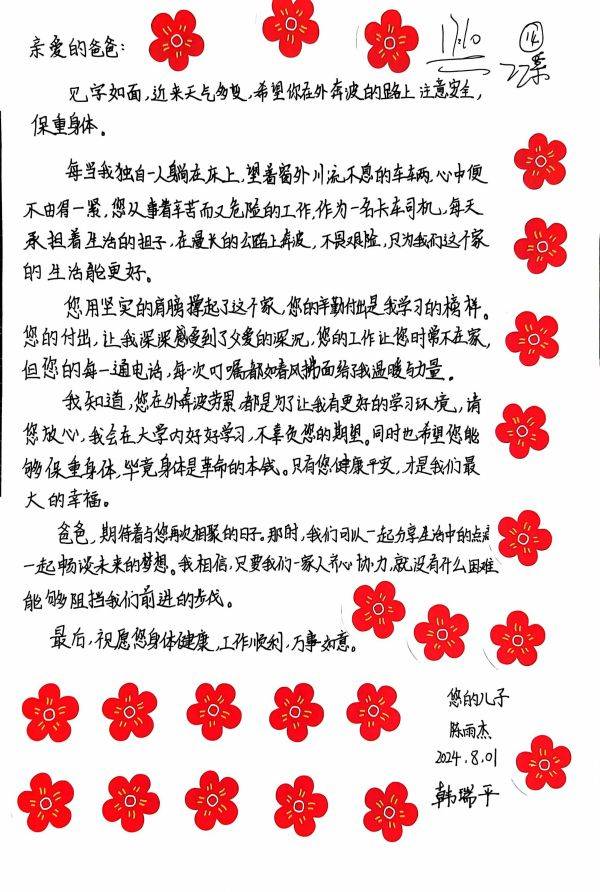 17:10
14
亲爱的爸爸:
见字如面,近来天气多变,希望你在外奔波的路上注意安全,
保重身体。
每当我独自一人躺在床上,望着窗外川流不息的车辆,心中便
不由得一紧,您从事着辛苦而又危险的工作,作为一名卡车司机,每天
承担着生活的担子,在漫长的公路上奔波,不畏艰险,只为我们这个家
的生活能更好。
您用坚实的肩膀撑起了这个家,您的辛勤付出是我学习的榜样。
您的付出,让我深深感受到了父爱的深沉,您的工作让您时常不在家,
但您的每一通电话,每一次叮嘱都如春风拂面给了我温暖与力量。
我知道,您在外奔波劳累,都是为了让我有更好的学习环境,请
您放心,我会在大学内好好学习,不辜负您的期望。同时也希望您能
够保重身体,毕竟身体是革命的本钱。只有您健康平安,才是我们最
大的幸福。
爸爸,期待着与您再次相聚的日子。那时,我们可以一起分享生活中的点滴
一起畅谈未来的梦想。我相信,只要我们一家人齐心协力,就没有什么困难
能够阻挡我们前进的步伐。
最后,祝愿您身体健康,工作顺利,万事如意。
您的儿子
陈雨杰
2024.8.01
韩瑞平